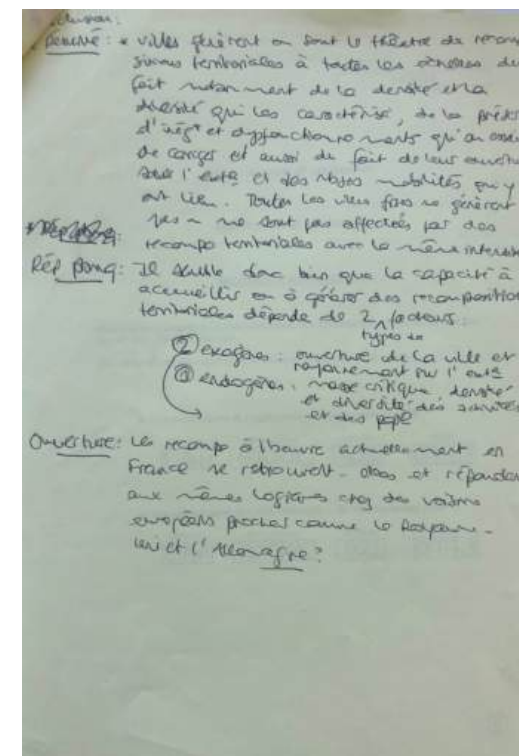 clusion:
Résumé : * villes génèrent ou sont le théâtre de recom
sitions territoriales à toutes les échelles du
fait notamment de la densité et la
diversité qui les caractérise, de la
d'inég^t et dysfonctionnements qu'on essaie
de corriger et aussi du fait de leur ouverture
sur l'ext^r et des mobilités qui y
ont lieu. Toutes les villes ne génèrent
pas ne sont pas affectées par des
recompo territoriales avec la même intensité
Rép pbmq : Il semble donc bien que la capacité à
accueillir ou à générer des recomposition
territoriales dépende de 2 facteurs :
types de
② exogènes : ouverture de la ville et
rayonnement sur l'ext^r
① endogènes : masse critique, densité
et diversité des services
et des pop^o
Ouverture : Les recompo à l'œuvre actuellement en
France se retrouvent- elles et répondent
aux mêmes logiques chez des voisins
européens proches comme le Royaume-
Uni et l'Allemagne ?